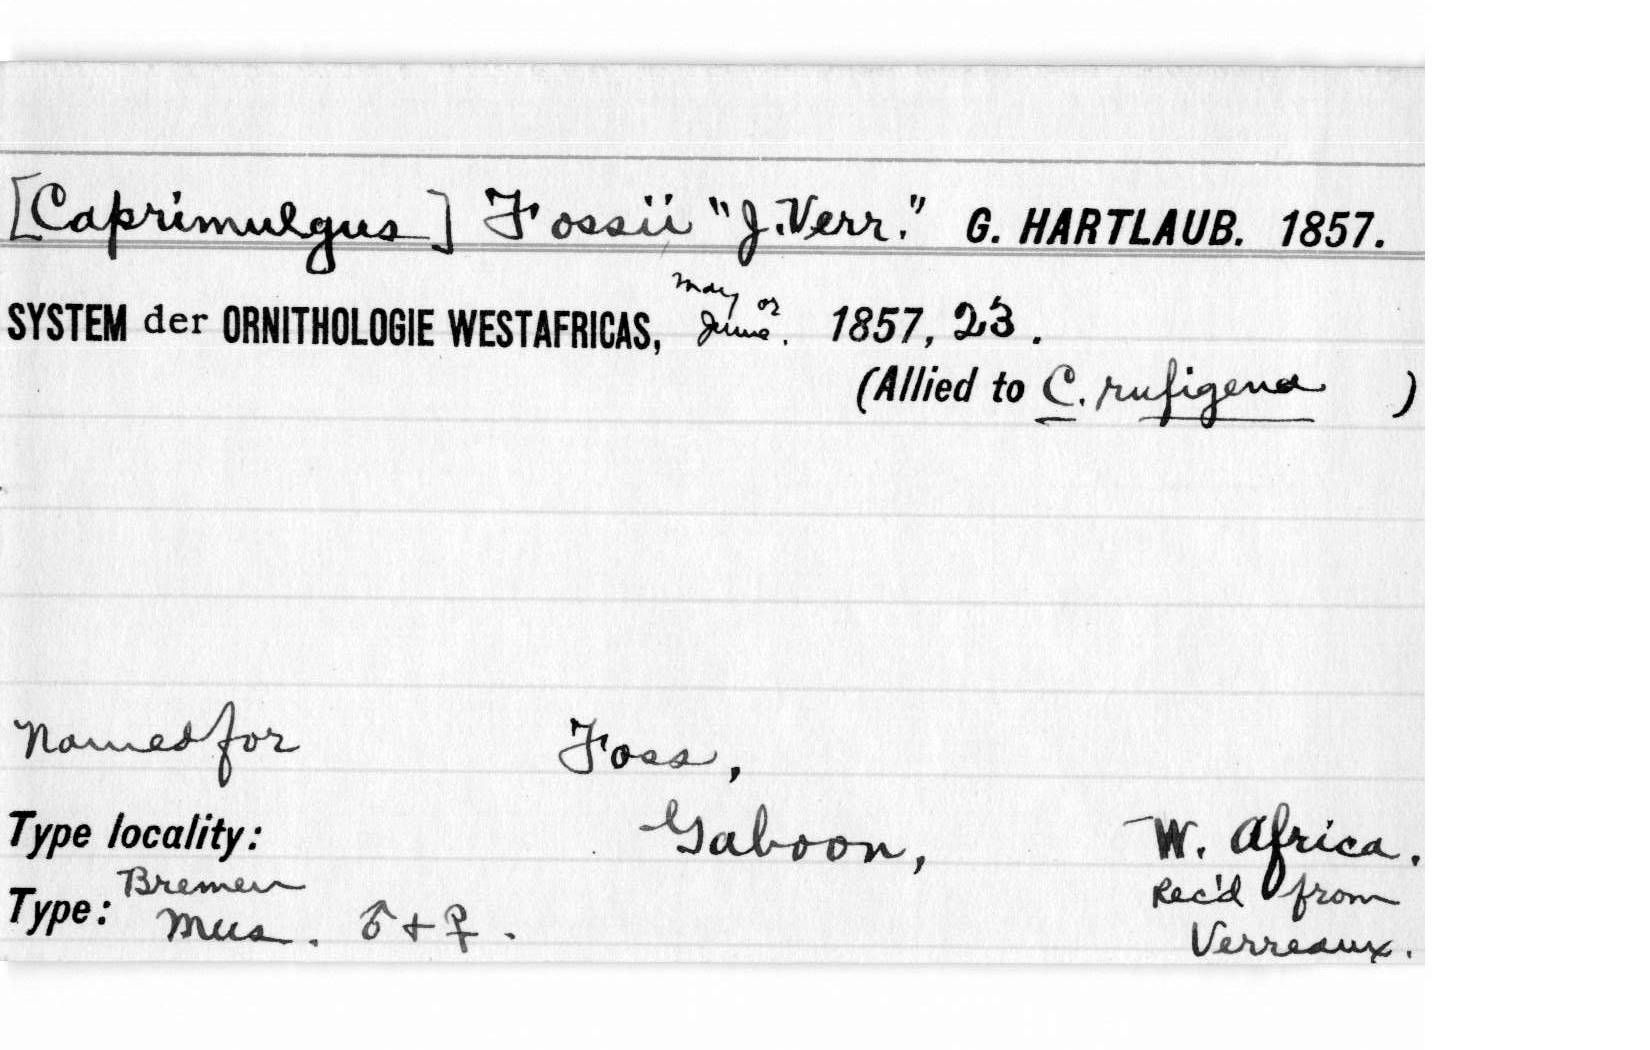 [Caprimulgus] Fossii "J. Verr." G. HARTLAUB. 1857.
SYSTEM der ORNITHOLOGIE WESTAFRICAS, May or June. 1857, 23.
(Allied to C. rufigena )
Named for Foss,
Type locality: Gaboon, W. Africa.
Type: Bremen Mus. ♂ + ♀. Rec'd from
Verreaux.